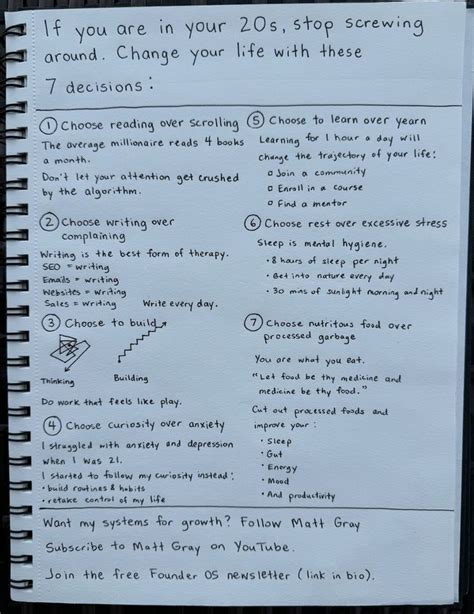 If you are in your 20s, stop screwing
around. Change your life with these
7 decisions:
① Choose reading over scrolling
The average millionaire reads 4 books
a month.
Don't let your attention get crushed
by the algorithm.
② Choose writing over
complaining
Writing is the best form of therapy.
SEO = writing
Emails = writing
Websites = writing
Sales = writing Write every day.
③ Choose to build
Thinking Building
Do work that feels like play.
④ Choose curiosity over anxiety
I struggled with anxiety and depression
when I was 21.
I started to follow my curiosity instead:
• build routines & habits
• retake control of my life
⑤ Choose to learn over yearn
Learning for 1 hour a day will
change the trajectory of your life:
▫ Join a community
▫ Enroll in a course
▫ Find a mentor
⑥ Choose rest over excessive stress
Sleep is mental hygiene.
• 8 hours of sleep per night
• Get into nature every day
• 30 mins of sunlight morning and night
⑦ Choose nutritous food over
processed garbage
You are what you eat.
"Let food be thy medicine and
medicine be thy food."
Cut out processed foods and
improve your:
• Sleep
• Gut
• Energy
• Mood
• And productivity
Want my systems for growth? Follow Matt Gray
Subscribe to Matt Gray on YouTube.
Join the free Founder OS newsletter (link in bio).